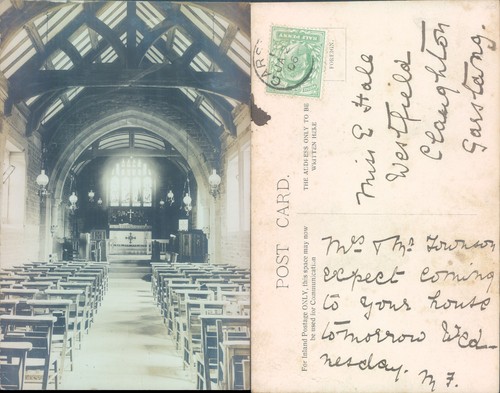 GARST
HALF PENNY
FOREIGN.
POST CARD.
THE ADDRESS ONLY TO BE
WRITTEN HERE
For Inland Postage ONLY, this space may now
be used for Communication
Miss E Hale
Westfield
Claughton
Garstang.
Mrs & Mr Townson
expect coming
to your house
tomorrow Wed-
nesday.
M F.